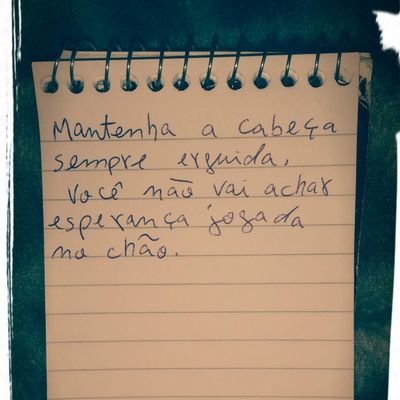 Mantenha a cabeça
sempre erguida.
Você não vai achar
esperança jogada
no chão.